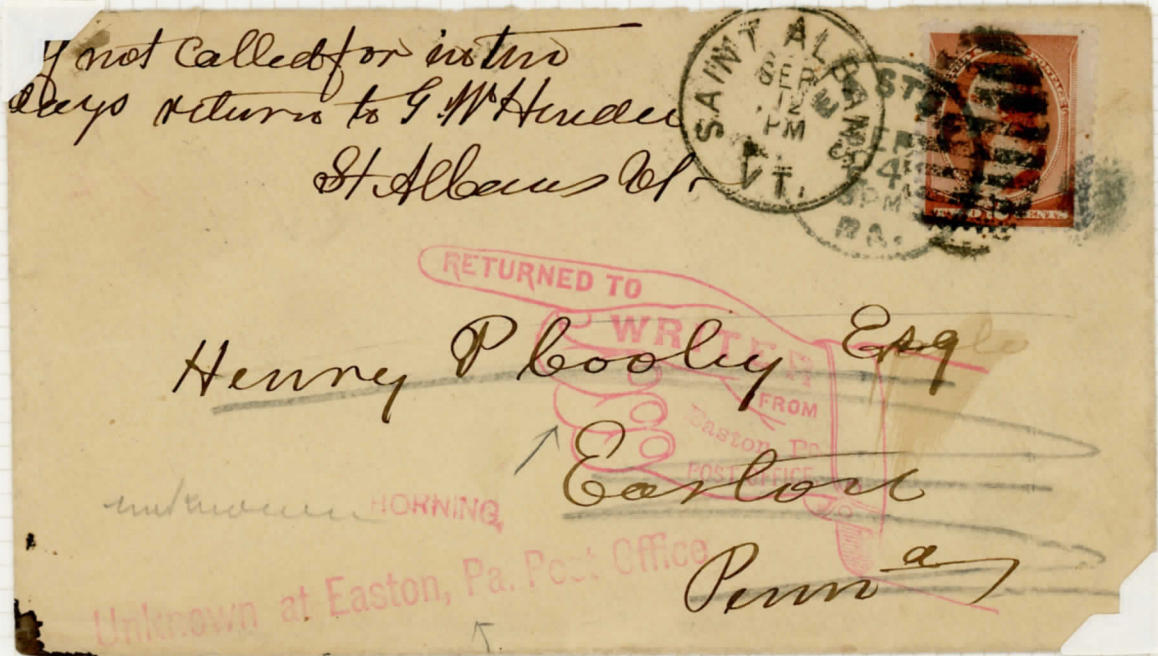 If not called for in two
days return to G. W. Hindee
St Albans Vt
SAINT ALBANS
SEP
12
PM
VT.
4
PM
PA.
TWO CENTS
RETURNED TO
WRITER
FROM
Easton, Pa
POST OFFICE
Henry P Cooley Esq
Easton
Penna
unknown
HORNING,
Unknown at Easton, Pa. Post Office